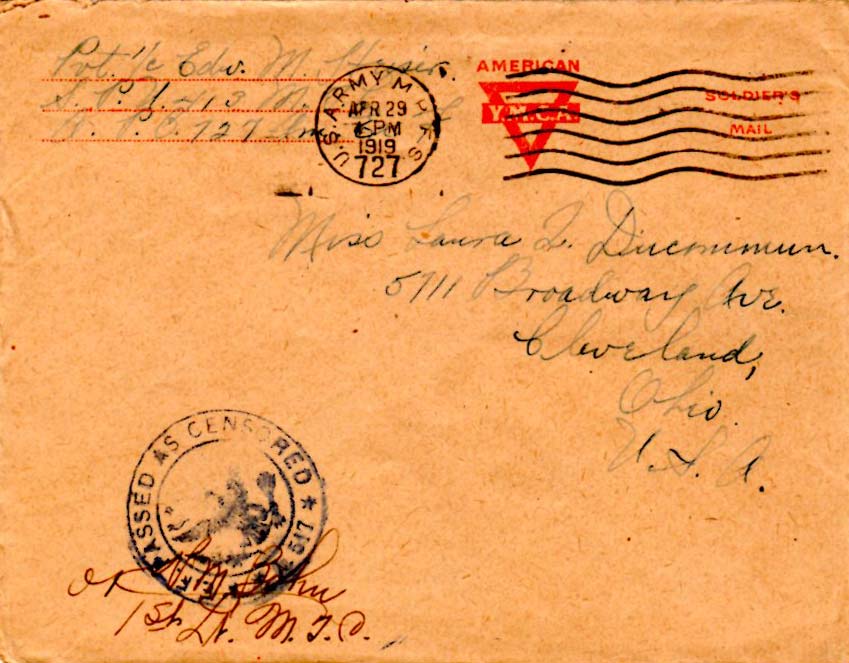 Pvt. 1/c Edw. M.
S. P. U. 413 M.
727
U.S. ARMY M.P.E.S.
APR 29
PM
1919
727
AMERICAN
Y.M.C.A.
SOLDIER'S
MAIL
Miss Laura Ducommun.
5711 Broadway Ave.
Cleveland,
Ohio.
U.S.A.
PASSED AS CENSORED
OK
1st Lt. M.T.C.